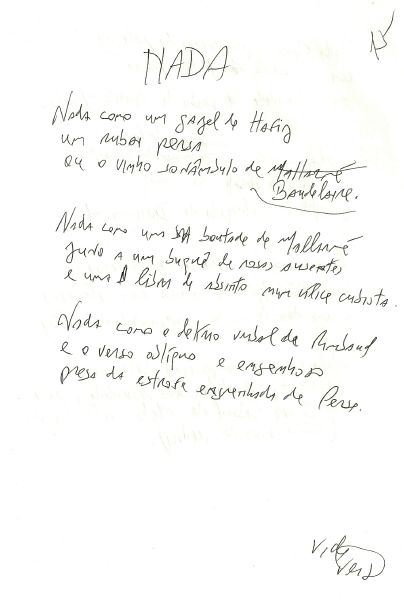 NADA
Nada como um gazel de Hafiz
um rubai persa
ou o vinho sonâmbulo de Mallarmé
Baudelaire.
Nada como uma boutade de Mallarmé
junto a um buquê de rosas ausentes
e uma libra de absinto num cálice cubista.
Nada como o verbal de Rimbaud
e o verso oblíquo e engenhoso
preso da estrofe engenhada de Perse.